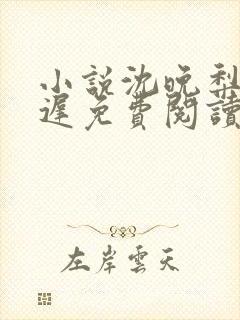 小説沈晚梨
遲免費閱讀
左岸雲天